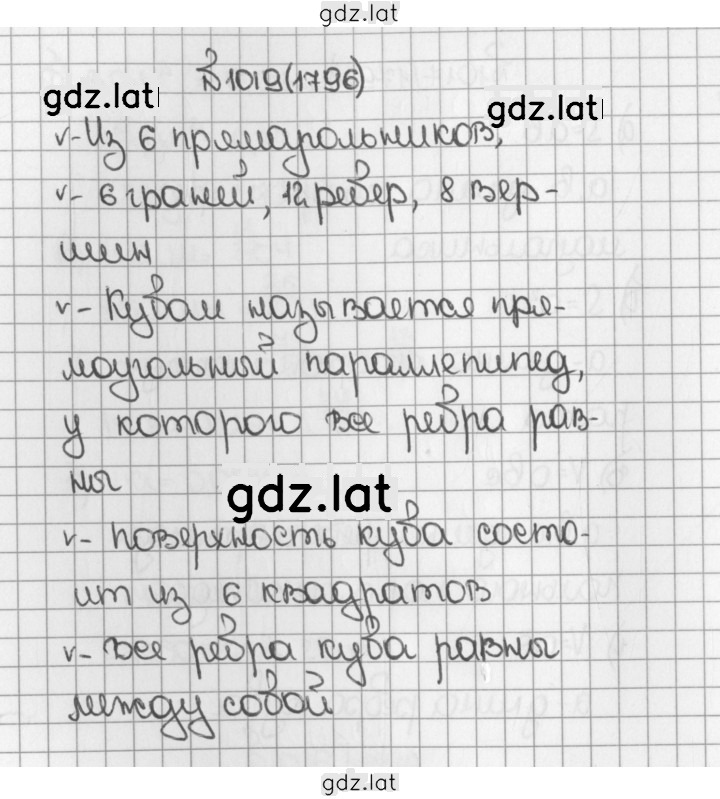 gdz.lat
№1019(1796)
gdz.lat gdz.lat
v-Из 6 прямоугольников,
v- 6 граней, 12 ребер, 8 вер-
шин
v- Кубом называется пря-
моугольный параллепипед,
у которого все ребра рав-
ны
gdz.lat
v- поверхность куба состо-
ит из 6 квадратов
v- все ребра куба равны
между собой
gdz.lat